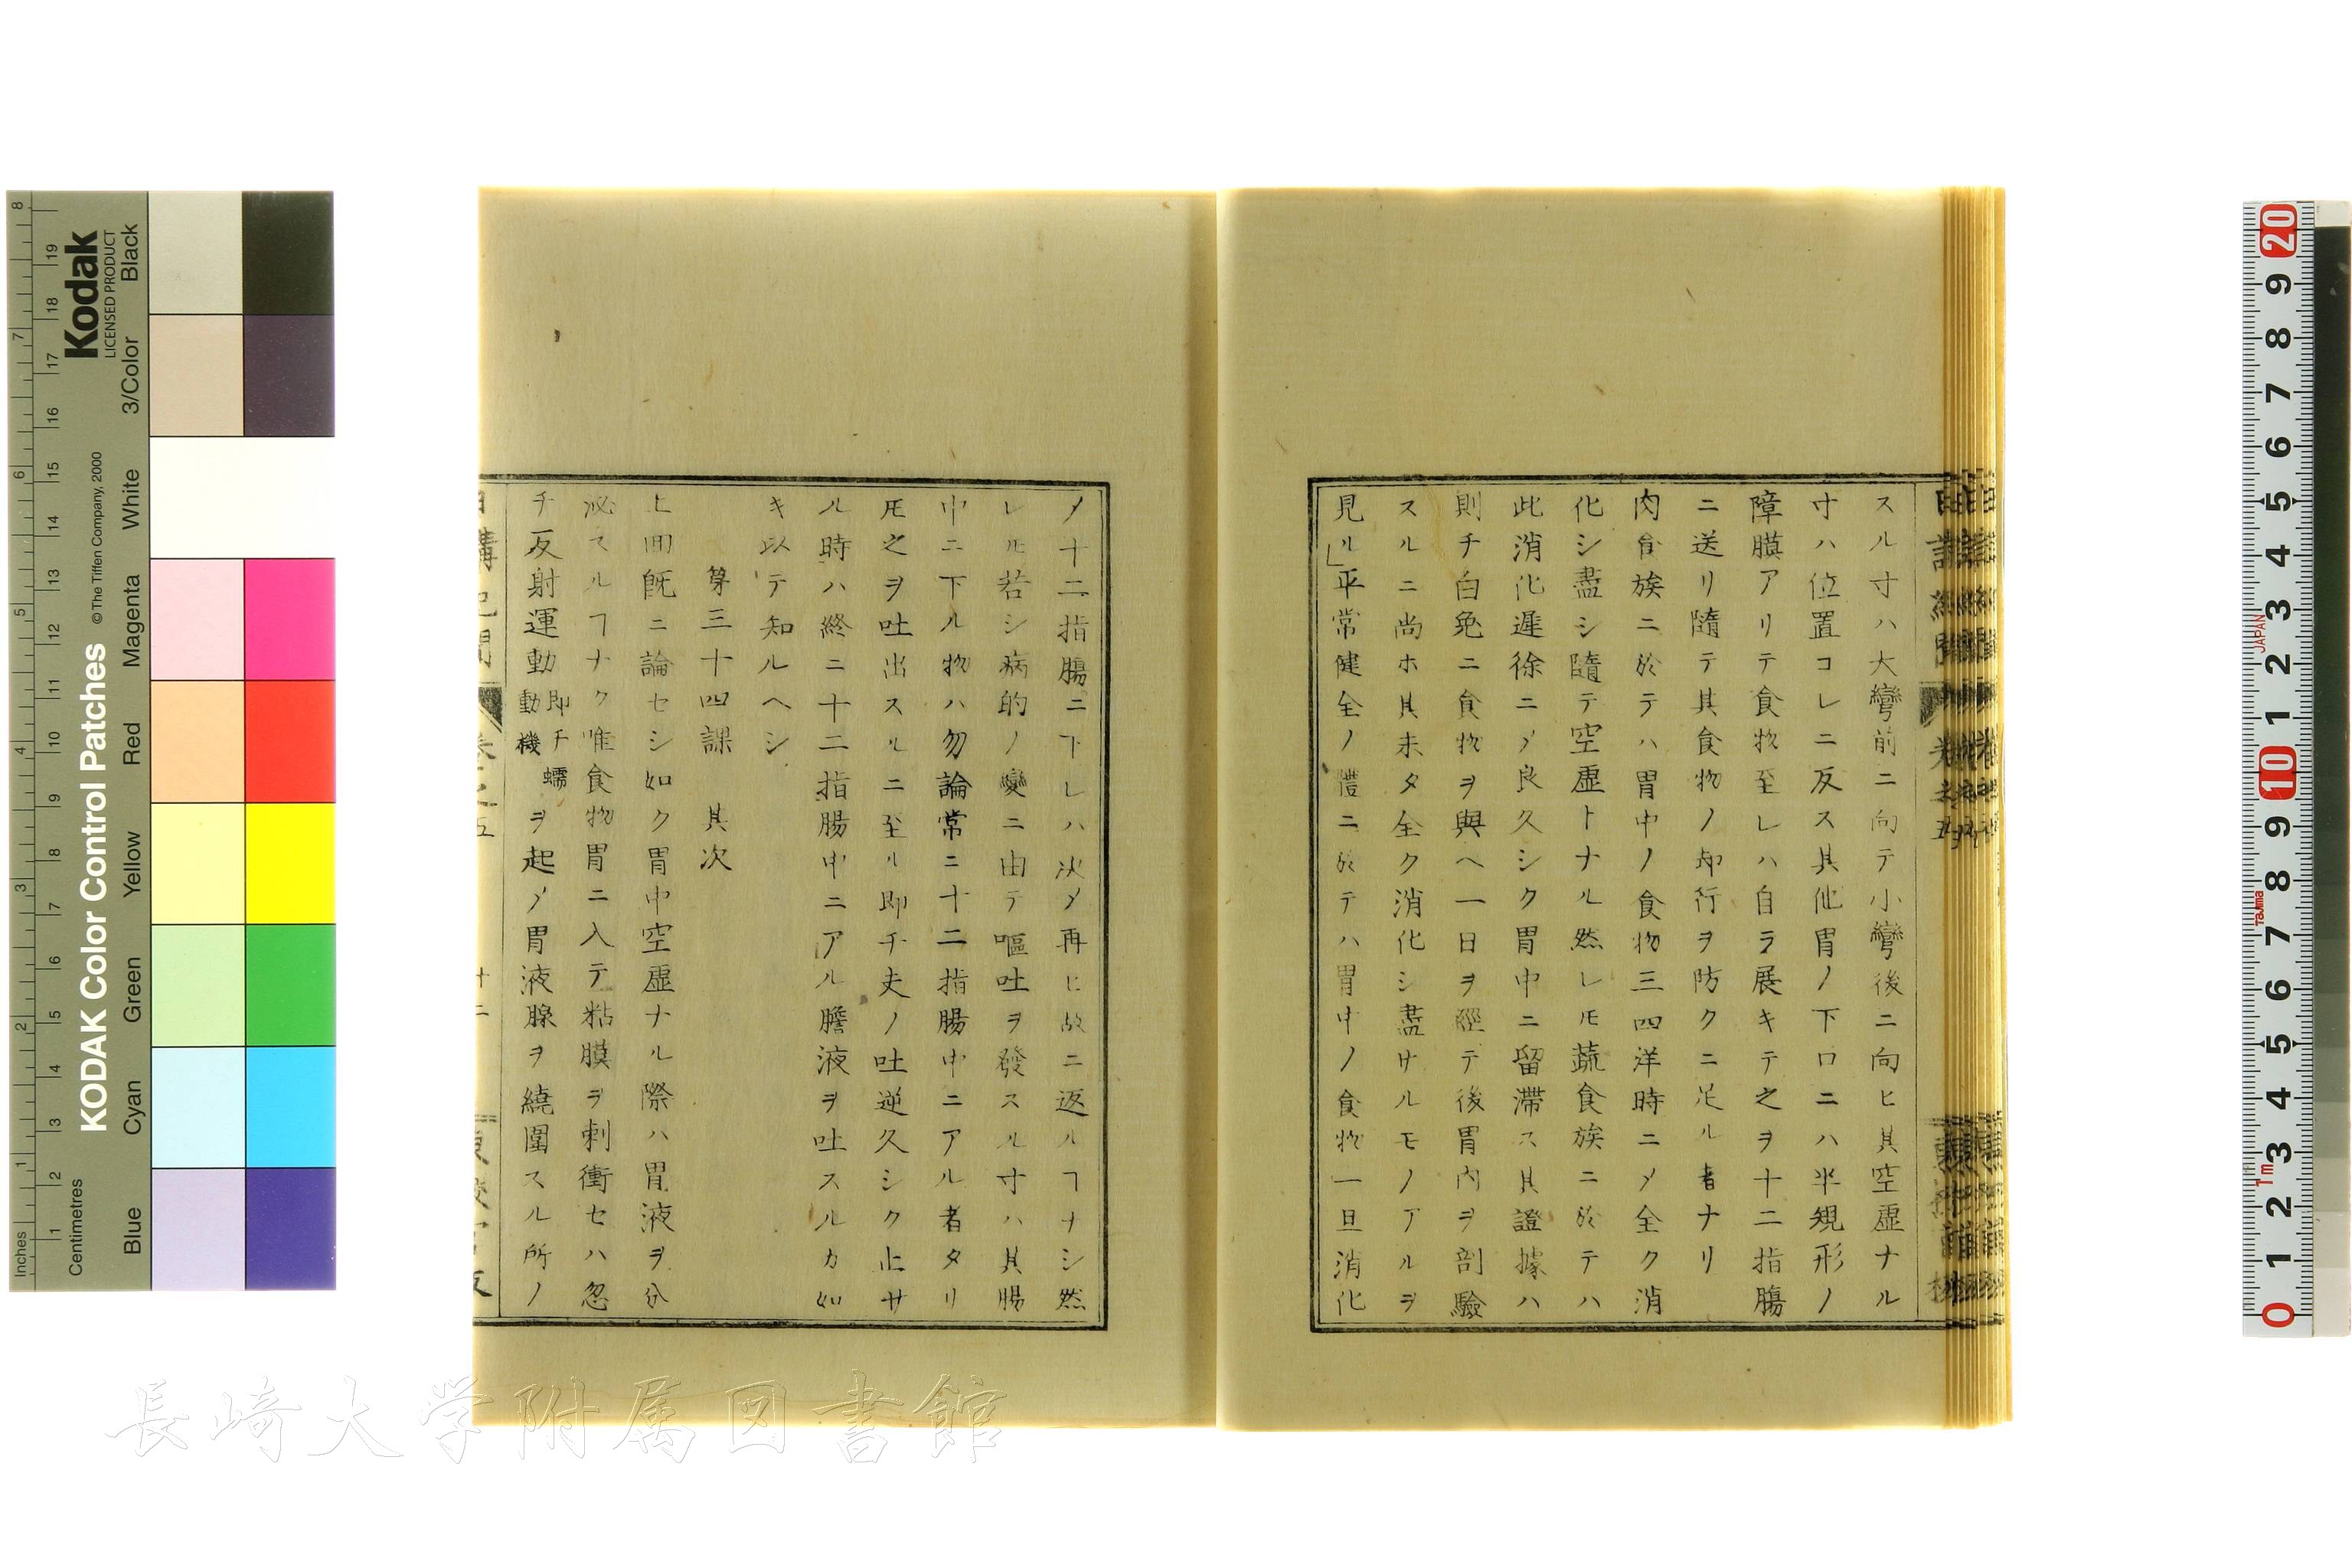 スル寸ハ大彎前ニ向テ小彎後ニ向ヒ其空虚ナル
寸ハ位置コレニ反ス其他胃ノ下口ニハ半規形ノ
障膜アリテ食物至レハ自ラ展キテ之ヲ十二指腸
ニ送リ隨テ其食物ノ却行ヲ防クニ足ル者ナリ
肉食族ニ於テハ胃中ノ食物三四洋時ニ〆全ク消
化シ盡シ隨テ空虚トナル然レ𪜈蔬食族ニ於テハ
此消化遲徐ニ〆良久シク胃中ニ留滯ス其證據ハ
則チ白兔ニ食物ヲ與ヘ一日ヲ經テ後胃内ヲ剖驗
スルニ尚ホ其未タ全ク消化シ盡サルモノアルヲ
見ル」平常健全ノ體ニ於テハ胃中ノ食物一旦消化
〆十二指腸ニ下レハ决〆再ヒ故ニ返ルヿナシ然
レ𪜈若シ病的ノ變ニ由テ嘔吐ヲ發スル寸ハ其腸
中ニ下ル物ハ勿論常ニ十二指腸中ニアル者タリ
𪜈之ヲ吐出スルニ至ル即チ夫ノ吐逆久シク止サ
ル時ハ終ニ十二指腸中ニアル膽液ヲ吐スルカ如
キ以テ知ルヘシ
第三十四課 其次
上回既ニ論セシ如ク胃中空虚ナル際ハ胃液ヲ分
泌スルヿナク唯食物胃ニ入テ粘膜ヲ刺衝セハ忽
チ反射運動即チ蠕動機ヲ起〆胃液腺ヲ繞圍スル所ノ
日講記聞 卷之五 廿二
長崎大学附属図書館
Kodak
LICENSED PRODUCT
KODAK Color Control Patches
© The Tiffen Company, 2000
Inches
1 2 3 4 5 6 7 8
Centimetres
1 2 3 4 5 6 7 8 9 10 11 12 13 14 15 16 17 18 19
Blue Cyan Green Yellow Red Magenta White 3/Color Black
0 1 2 3 4 5 6 7 8 9 10 1 2 3 4 5 6 7 8 9 20
1m
Tajima
JAPAN